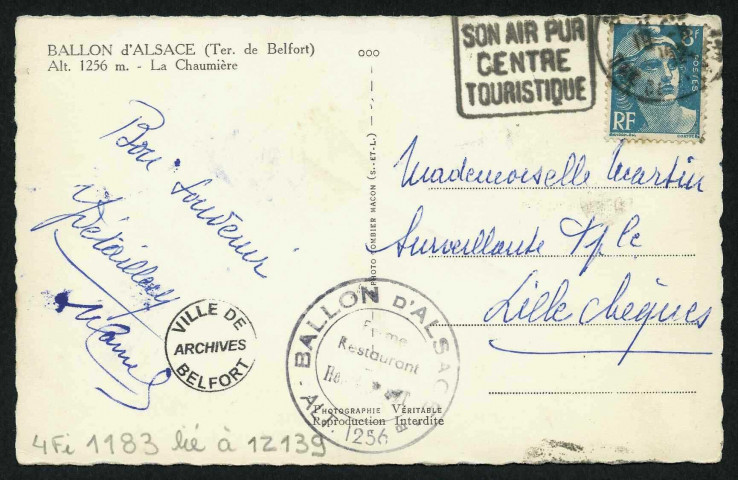 BALLON d'ALSACE (Ter. de Belfort)
Alt. 1256 m. - La Chaumière
Bon souvenir
PHOTO COMBIER MACON (S.-ET-L.)
SON AIR PUR
CENTRE
TOURISTIQUE
8F
POSTES
RF
Mademoiselle Martin
Surveillante Ppl
Lille chèques
VILLE DE
ARCHIVES
BELFORT
BALLON D'ALSACE
Ferme
Restaurant
ALT. 1256
Photographie Véritable
Reproduction Interdite
4Fi 1183 lié à 12139